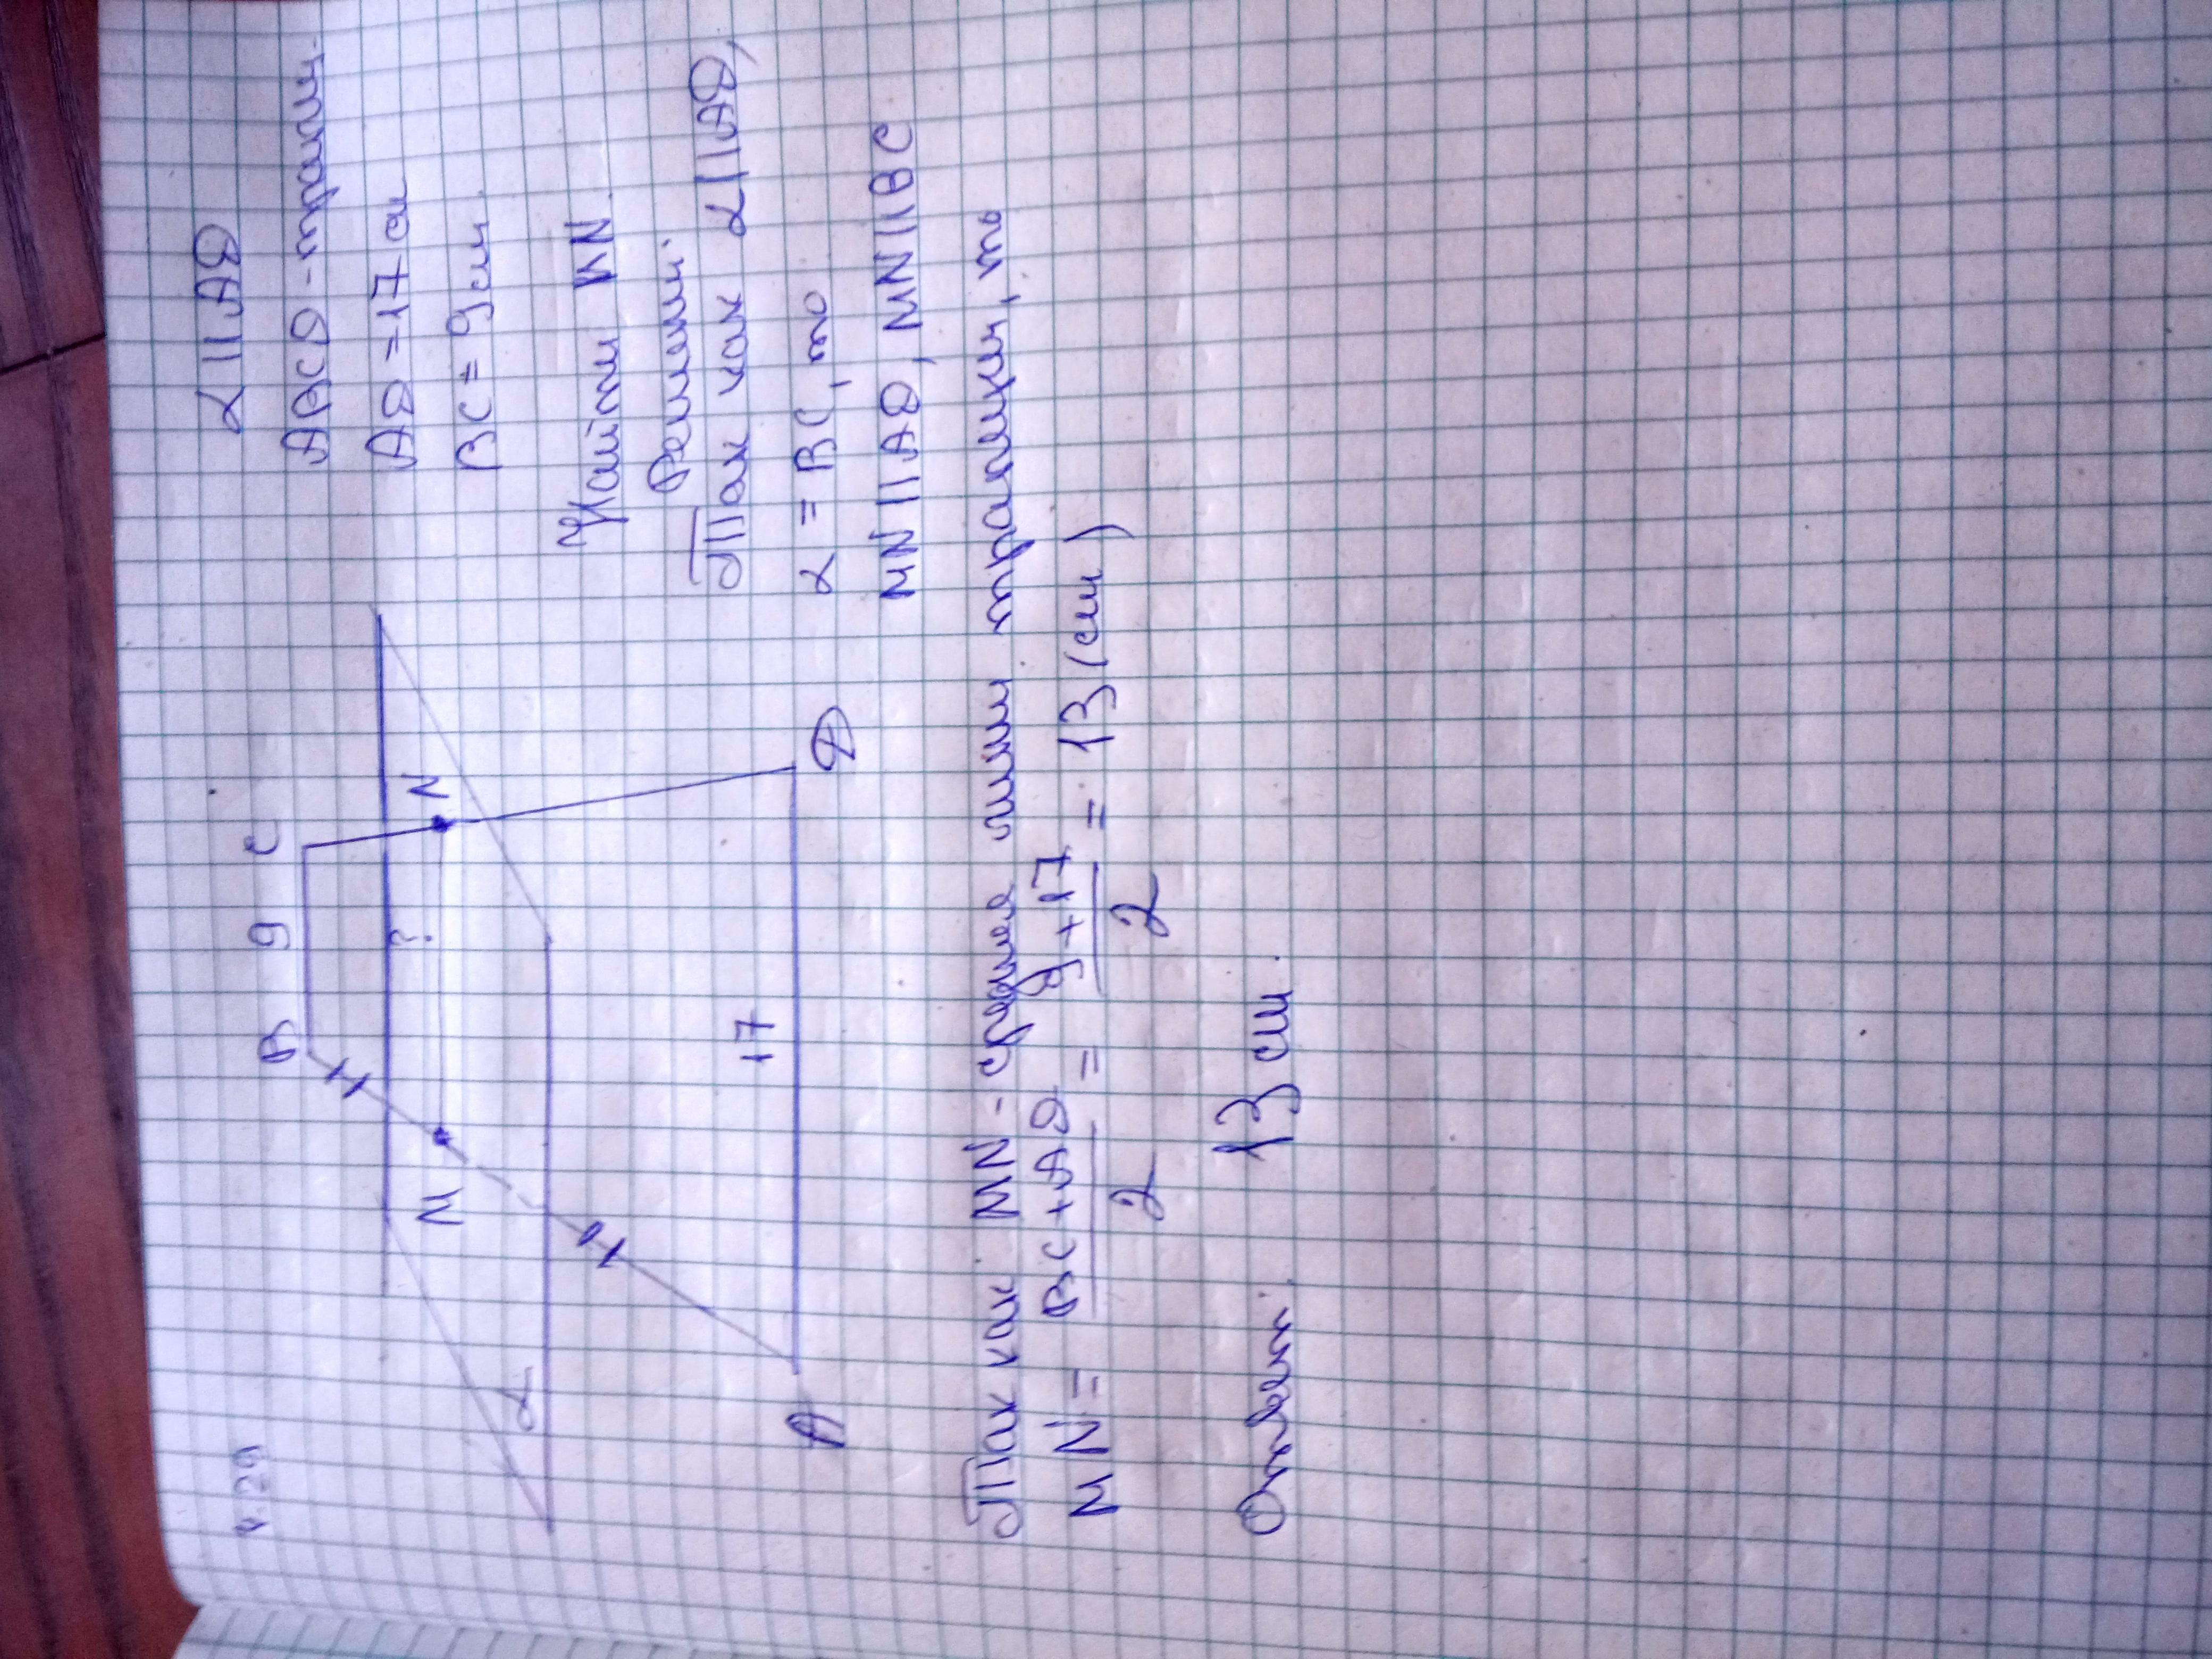 4.29
α || AD
ABCD - трапец.
AD = 17 см
BC = 9 см
Найти MN.
Решение:
Так как α || AD,
α = BC, то
MN || AD, MN || BC
B 9 C
M ? N
α
17
A D
Так как MN - средняя линия трапеции, то
MN = BC + AD / 2 = 9 + 17 / 2 = 13 (см)
Ответ: 13 см.